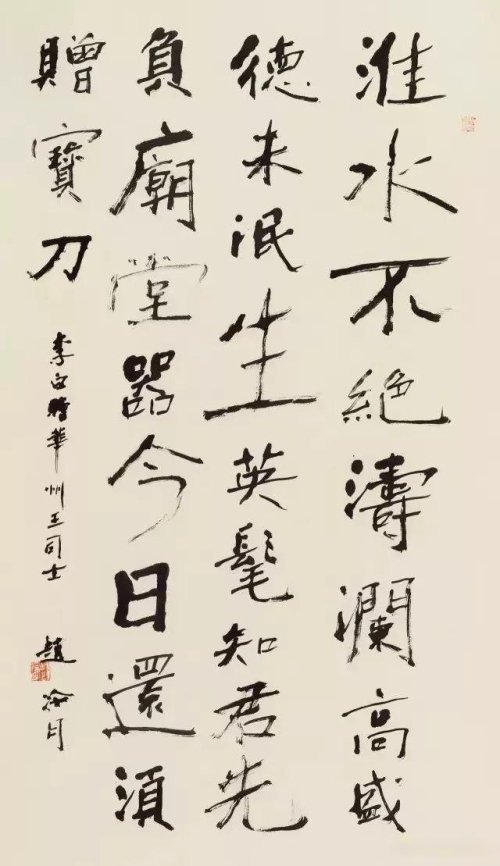 淮水不絕濤瀾高盛
德未泯生英髦知君先
負廟堂器今日還須
贈寶刀
李白贈華州王司士
趙冷月